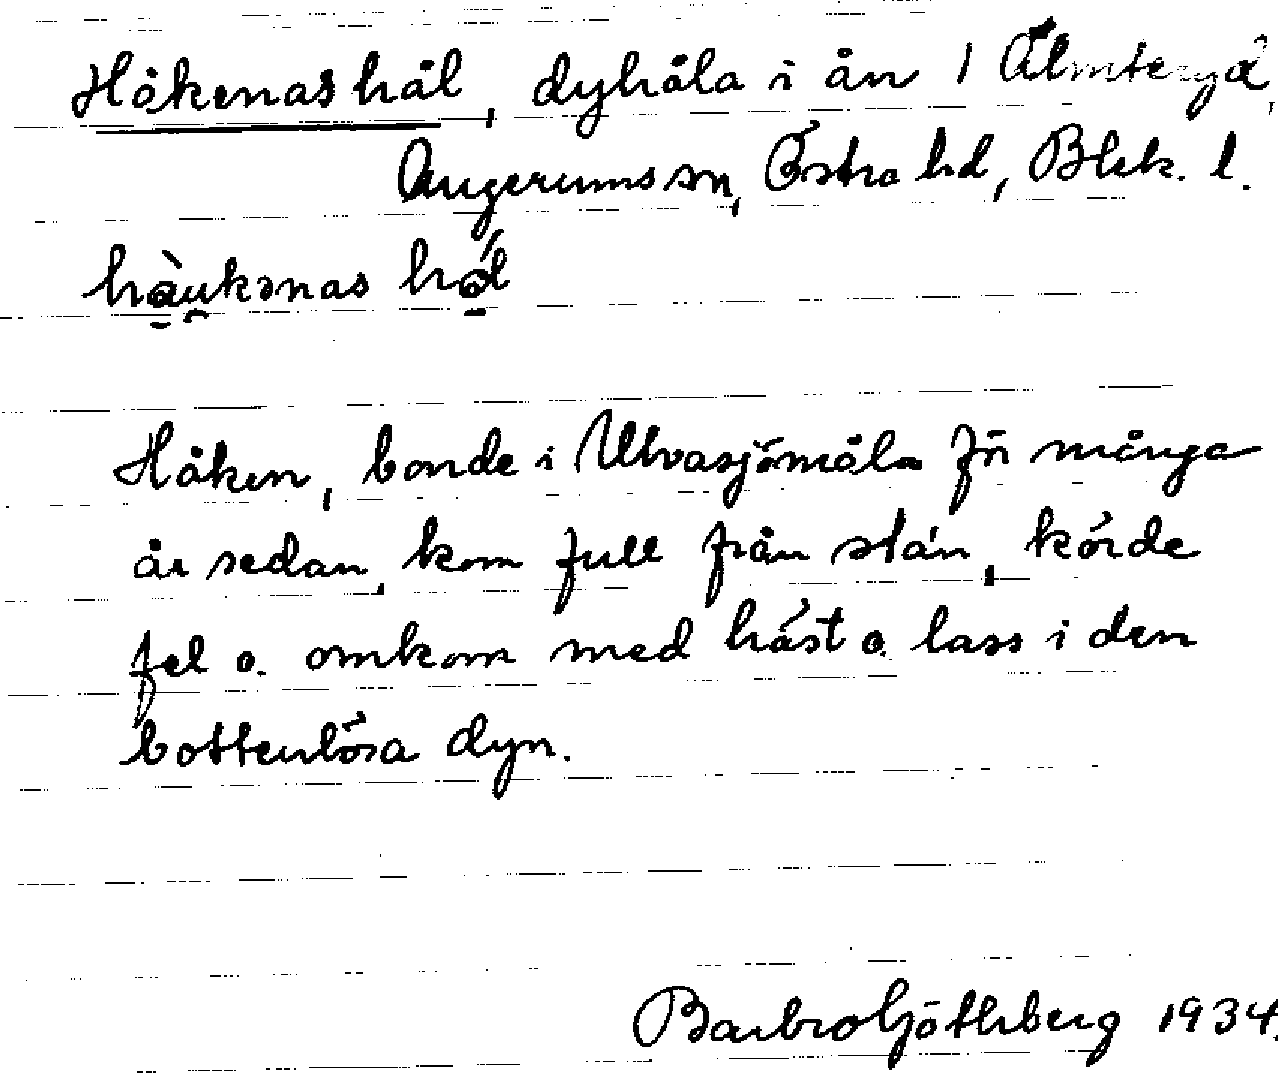 Håkenas hål, dyhåla i ån i Älmteryd,
Augerums sn, Östra hd, Blek. l.
hàukənas hål
Håken, bonde i Ulvasjömåla för många
år sedan, kom full från stán, körde
fel o. omkom med häst o. lass i den
bottenlösa dyn.
Barbro Göthberg 1934.